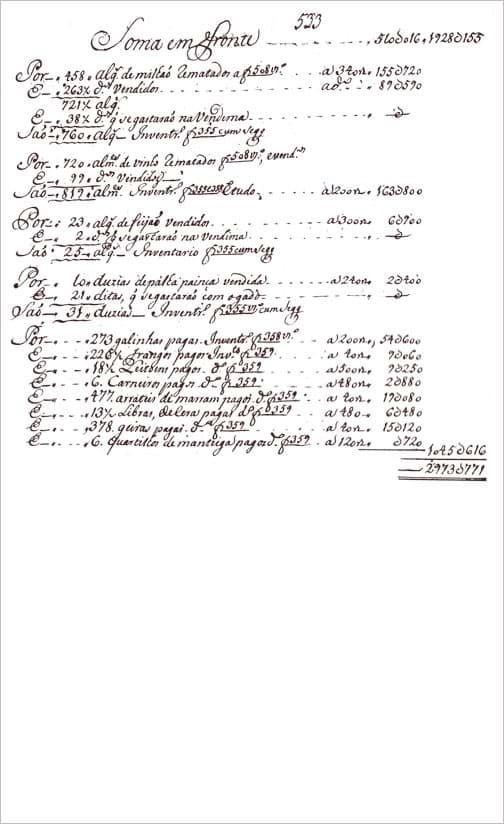 533
Soma em fronte 510δ016, 1928δ155
Por 458 alq. de milhaõ Rematados a f 508 vº. a 340 rs. 155δ720
E 263½ dos. vendidos a dº. 89δ590
721½ alq.
E 38½ dos. q̃ se gastaraõ na Vendima δ
Saõ 760 alq. Inventrº. f 355 cum seqq
Por 720 almes. de vinho Rematados f 508 vº, e vendos.
E 99 dos. Vendidos
Saõ 819 almes. Inventrº. Etudo a 200 rs. 163δ800
Por 23 alq. de feijaõ vendidos a 300 rs. 6δ900
E 2 dos. q̃ se gastaraõ na vendima δ
Saõ 25 alq. Inventario f 355 cum seqq
Por 10 duzias de palha painça vendida a 240 rs. 2δ400
E 21 ditas, q̃ se gastaraõ com o gado δ
Saõ 31 duzias Inventrº. f 355 vº cum seqq
Por 273 galinhas pagas. Inventrº. f 358 vº. a 200 rs, 54δ600
E 226½ frangos pagos Invro. f 359 a 40 rs. 9δ060
E 18½ pagos. do. f 359 a 500 rs. 9δ250
E 6. Carneiros pagos do. f 359 a 480 rs. 2δ880
E 477 arrateis de marram pagos do. f 359 a 40 rs. 19δ080
E 13½ Libras, de Cera pagas do. f 359 a 480 6δ480
E 378 geiras pagas. do. f 359 a 40 rs. 15δ120
E 6. Quartilhos de manteiga pagos do. f 359 a 120 rs. δ720
1.045δ616
2973δ771